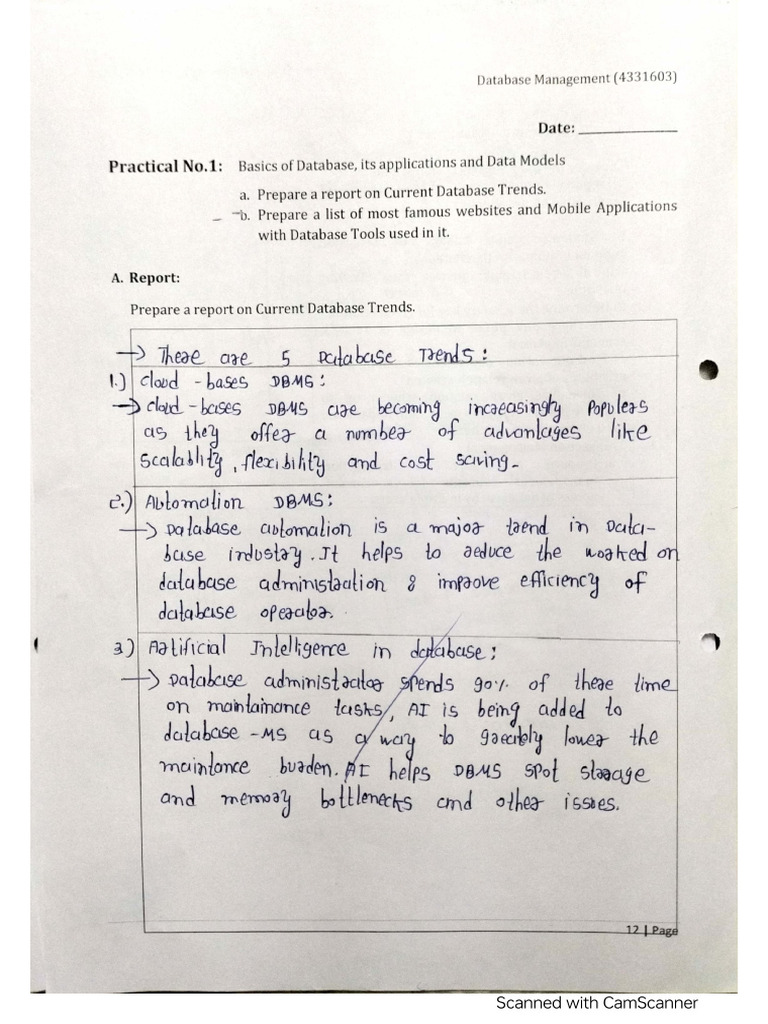 Database Management (4331603)
Date: ____________
Practical No.1: Basics of Database, its applications and Data Models
a. Prepare a report on Current Database Trends.
b. Prepare a list of most famous websites and Mobile Applications
with Database Tools used in it.
A. Report:
Prepare a report on Current Database Trends.
→ There are 5 Database Trends:
1.) Cloud - bases DBMS:
→ cloud - bases DBMS are becoming increasingly Populers
as they offer a number of advantages like
Scalablity, flexibility and cost saving-
2.) Automation DBMS:
→ Database automation is a major trend in Data-
base industry. It helps to reduce the worked on
database administraction & improve efficiency of
database operator.
3) Artificial Intelligence in database:
→ Database administractor spends 90% of there time
on maintainance tasks, AI is being added to
database -MS as a way to greately lower the
maintance burden. AI helps DBMS spot storage
and memory bottlenecks and other issues.
12 | Page
Scanned with CamScanner